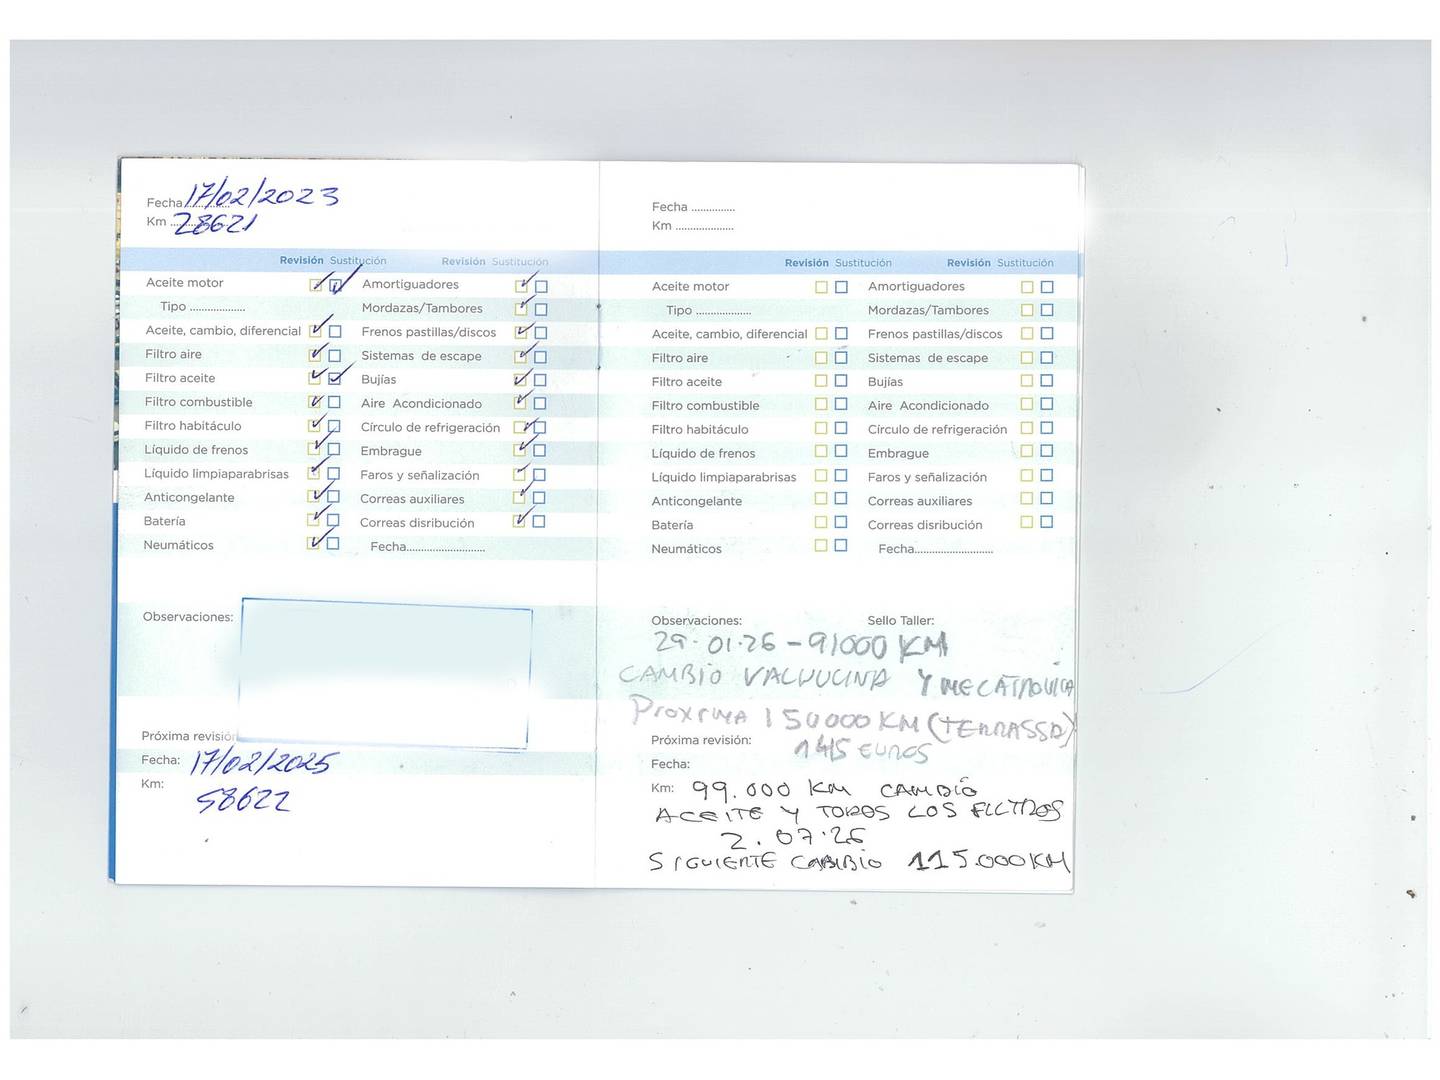 Fecha 17/02/2023
Km 28621
Revisión Sustitución Revisión Sustitución
Aceite motor Amortiguadores
Tipo .................. Mordazas/Tambores
Aceite, cambio, diferencial Frenos pastillas/discos
Filtro aire Sistemas de escape
Filtro aceite Bujías
Filtro combustible Aire Acondicionado
Filtro habitáculo Círculo de refrigeración
Líquido de frenos Embrague
Líquido limpiaparabrisas Faros y señalización
Anticongelante Correas auxiliares
Batería Correas disribución
Neumáticos Fecha.........................
Observaciones:
Próxima revisión
Fecha: 17/02/2025
Km: 58622
Fecha ..............
Km ...................
Revisión Sustitución Revisión Sustitución
Aceite motor Amortiguadores
Tipo .................. Mordazas/Tambores
Aceite, cambio, diferencial Frenos pastillas/discos
Filtro aire Sistemas de escape
Filtro aceite Bujías
Filtro combustible Aire Acondicionado
Filtro habitáculo Círculo de refrigeración
Líquido de frenos Embrague
Líquido limpiaparabrisas Faros y señalización
Anticongelante Correas auxiliares
Batería Correas disribución
Neumáticos Fecha.........................
Observaciones: Sello Taller:
29·01·26 - 91000 KM
CAMBIO VALVULINA Y MECATRONICA
PROXIMA 150000 KM (TERRASSA)
Próxima revisión: 145 EUROS
Fecha:
Km: 99.000 KM CAMBIO
ACEITE Y TODOS LOS FILTROS
2.07.26
SIGUIENTE CAMBIO 115.000 KM